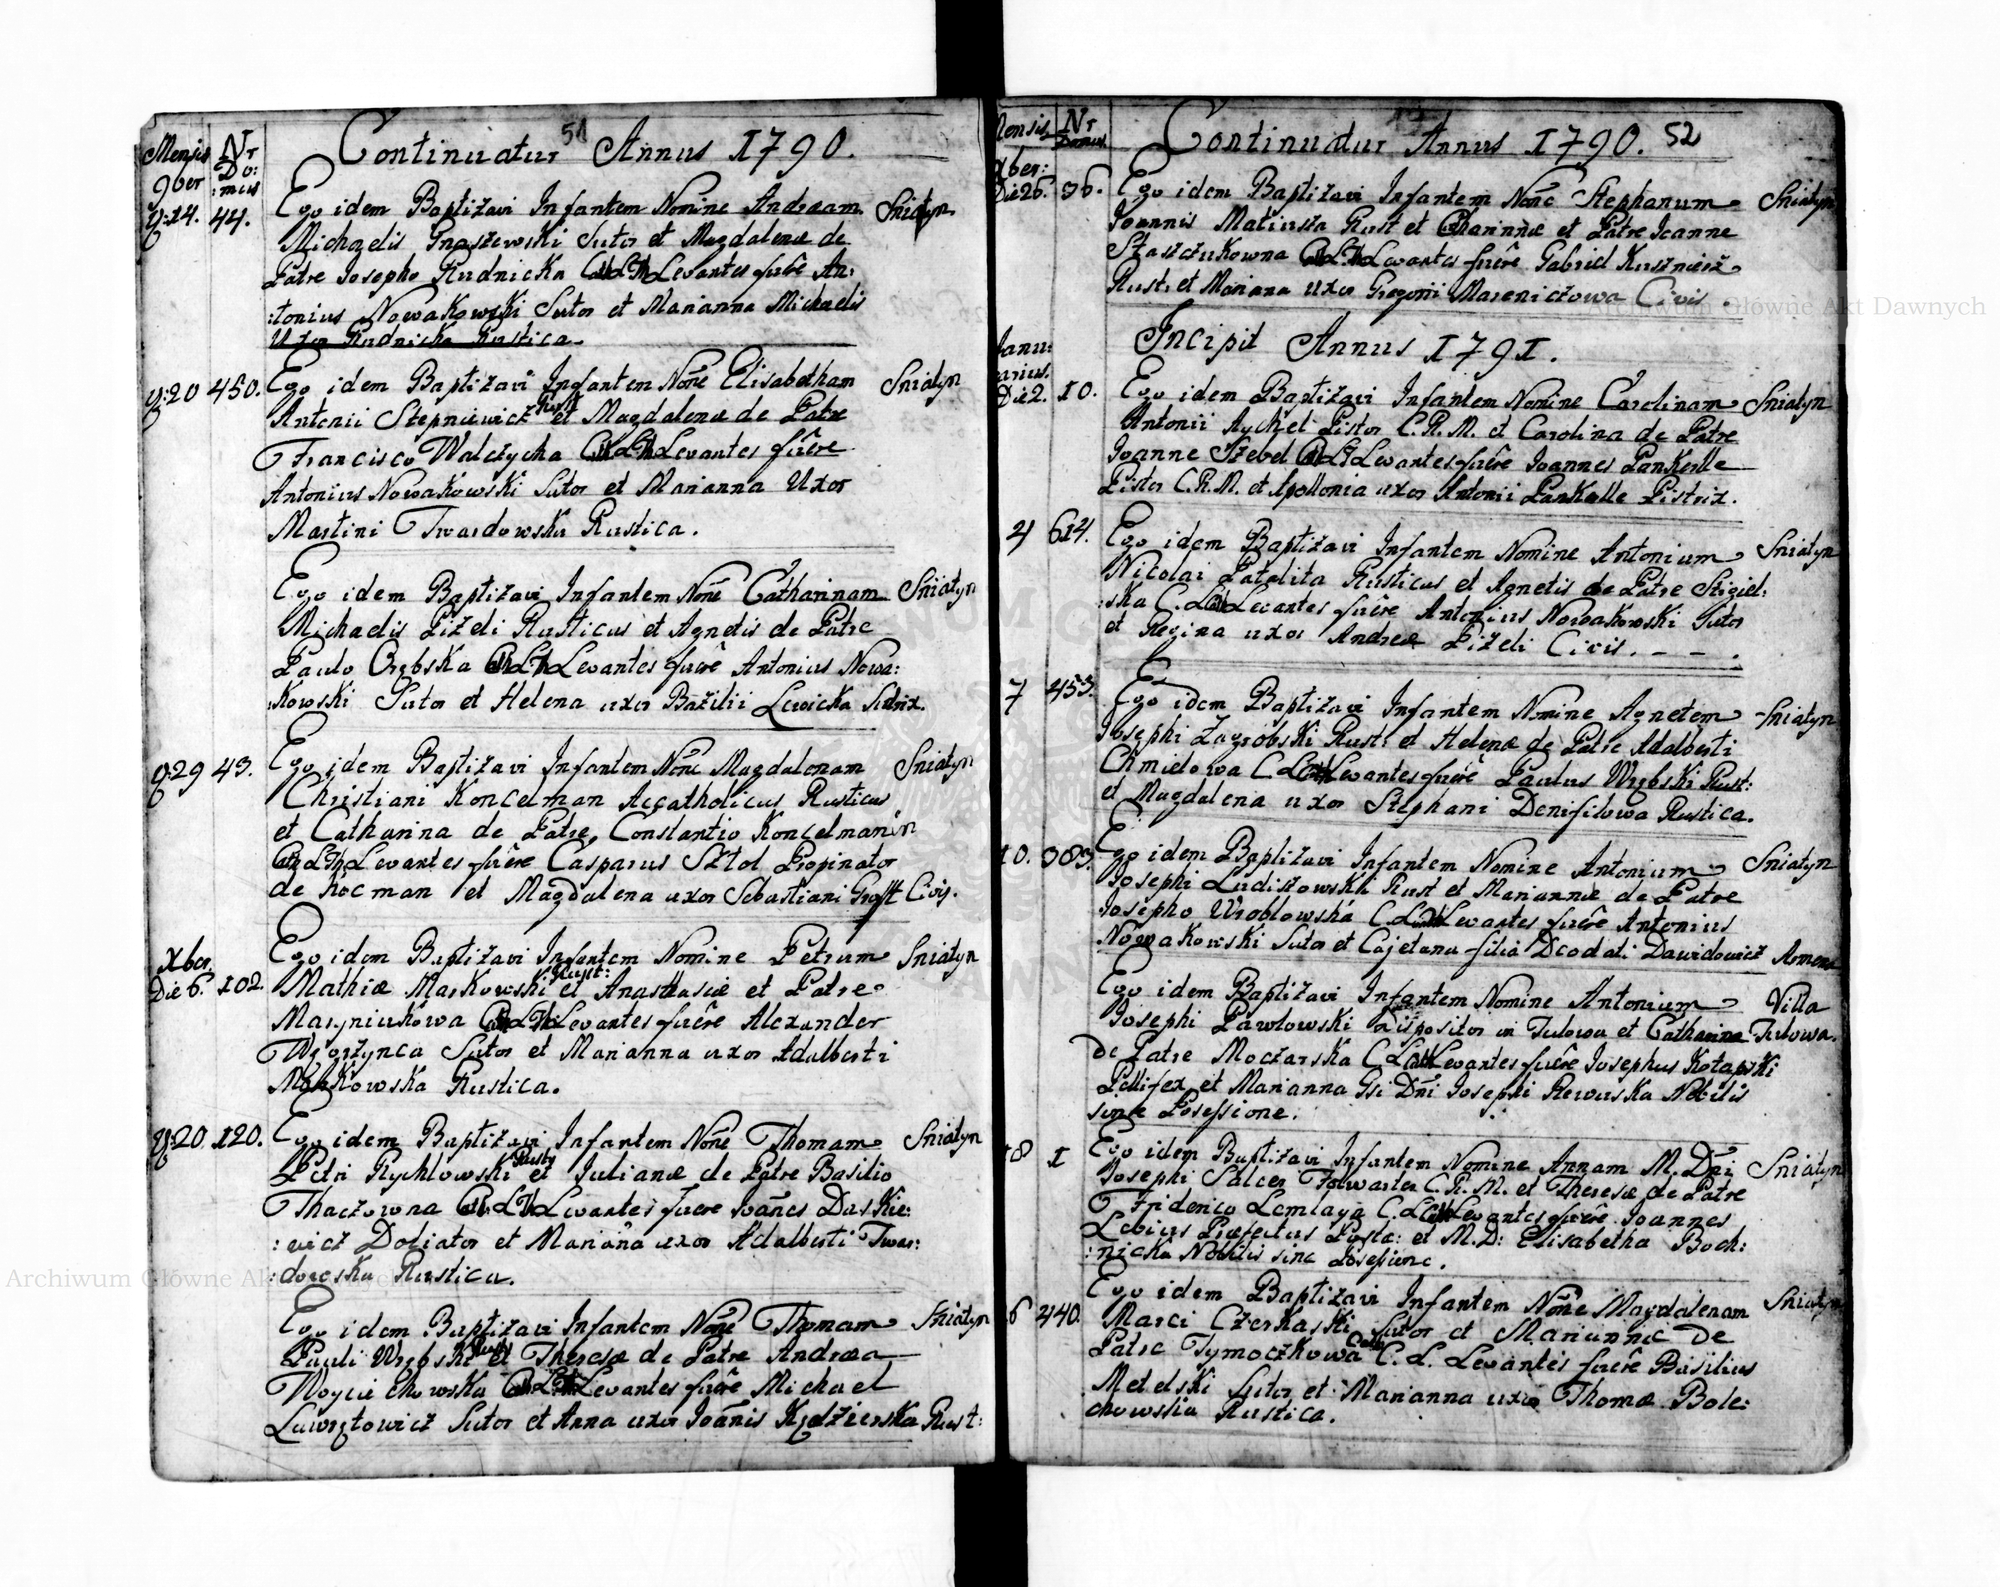 51
Continuatur Annus 1790.
Mensis
9ber
Nr
Do:
:mus
44.
Ego idem Baptizavi Infantem Nomine Andream Sniatyn
Michaelis Gnaszewski Sutor et Magdalenæ de
Patre Josepho Rudnicka Levantes fuêre An:
:tonius Nowakowski Sutor et Marianna Michaelis
Uxor Rudnicka Rustica
20 450. Ego idem Baptizavi Infantem Noñe Elisabetham Sniatyn
Antonii Stepniewicz Rust: et Magdalenæ de Patre
Francisco Walczycha Levantes fuêre
Antonius Nowakowski Sutor et Marianna Uxor
Martini Twardowska Rustica.
Ego idem Baptizavi Infantem Noñe Catharinam Sniatyn
Michaelis Pizeli Rusticus et Agnetis de Patre
Paulo Levantes fuêre Antonius Nowa:
:kowski Sutor et Helena uxor Bazilii Lewicka Sutrix.
29 43. Ego idem Baptizavi Infantem Noñe Magdalenam Sniatyn
Christiani Koncelman Accatholicus Rusticus
et Catharina de Patre Constantio Koncelmanin
Levantes fuêre Casparus Sztol Propinator
de Kocman et Magdalena uxor Sebastiani Civis.
Xber.
Die 6. 102. Ego idem Baptizavi Infantem Nomine Petrum Sniatyn
Mathiæ Markowski Rust: et Anastasiæ et Patre
Maryniukowa Levantes fuêre Alexander
Sutor et Marianna uxor Adalberti
Markowska Rustica.
20. 120. Ego idem Baptizavi Infantem Noñe Thomam Sniatyn
Petri Rychlowski et Julianæ de Patre Basilio
Thaczowna Levantes fuere Joañes Daskie:
:wicz Doliator et Mariana uxor Adalberti Twar:
:dowska Rustica.
Ego idem Baptizavi Infantem Noñe Thomam Sniatyn
Pauli et Theresæ de Patre Andræa
Woyciechowska Levantes fuêre Michael
Sutor et Anna uxor Joañis Rust:
Mensis
Nr
Domus
Continuatur Annus 1790. 52
Xber:
Die 26. 36. Ego idem Baptizavi Infantem Noñe Stephanum Sniatyn
Joannis Rust et et Patre Joanne
Levantes fuêre Gabriel Kusznierz
Rust: et Mariana uxor Gregorii Civis.
Incipit Annus 1791.
Janu:
arius.
Die 2. 10. Ego idem Baptizavi Infantem Nomine Carolinam Sniatyn
Antonii Aychel Pistor C.R.M. et Carolina de Patre
Joanne Levantes fuêre Joannes Pankelle
Pistor C.R.M. et Apollonia uxor Antonii Pankelle Pistrix.
4 614. Ego idem Baptizavi Infantem Nomine Antonium Sniatyn
Nicolai Rusticus et Agnetis de Patre Sigiel:
:ska C. L. Levantes fuêre Antonius Nowakowski Sutor
et Regina uxor Andreæ Pizeli Civis. - - .
7 453. Ego idem Baptizavi Infantem Nomine Agnetem Sniatyn
Josephi Zagrobski Rust: et Helenæ de Patre Adalberti
Chmielowa C. L. Levantes fuêrê Paulus Rust:
et Magdalena uxor Stephani Denisilowa Rustica.
10. 383. Ego idem Baptizavi Infantem Nomine Antonium Sniatyn
Josephi Rust et Mariannæ de Patre
Josepho Wroblowska C. L. Levantes fuêre Antonius
Nowakowski Sutor et Cajetana filia Deodati Dawidowicz Armena
Ego idem Baptizavi Infantem Nomine Antonium Villa
Josephi Pawlowski Dispositor in Tulowa et Catharina Tulowa.
De Patre Moczarska C. L. Levantes fuêre Josephus
Pellifex et Marianna Gsi Dñi Josephi Rewuska Nobilis
sine Possessione.
18 1 Ego idem Baptizavi Infantem Nomine Annam M. Dñi Sniatyn
Josephi Salcer C.R.M. et Theresæ de Patre
Friderico C. L. Levantes fuêre Joannes
Præfectus Postæ: et M.D: Elisabetha Boch:
:nicka Nobilis sine Possessione.
6 440. Ego idem Baptizavi Infantem Noñe Magdalenam Sniatyn
Marci Czerkaski Sutor et Mariannæ De
Patre Tymoczkowa C. L. Levantes fuêre Basilius
Metelski Sutor et Marianna uxor Thomæ Bole:
chowska Rustica.
Archiwum Główne Akt Dawnych
Archiwum Główne Akt Dawnych